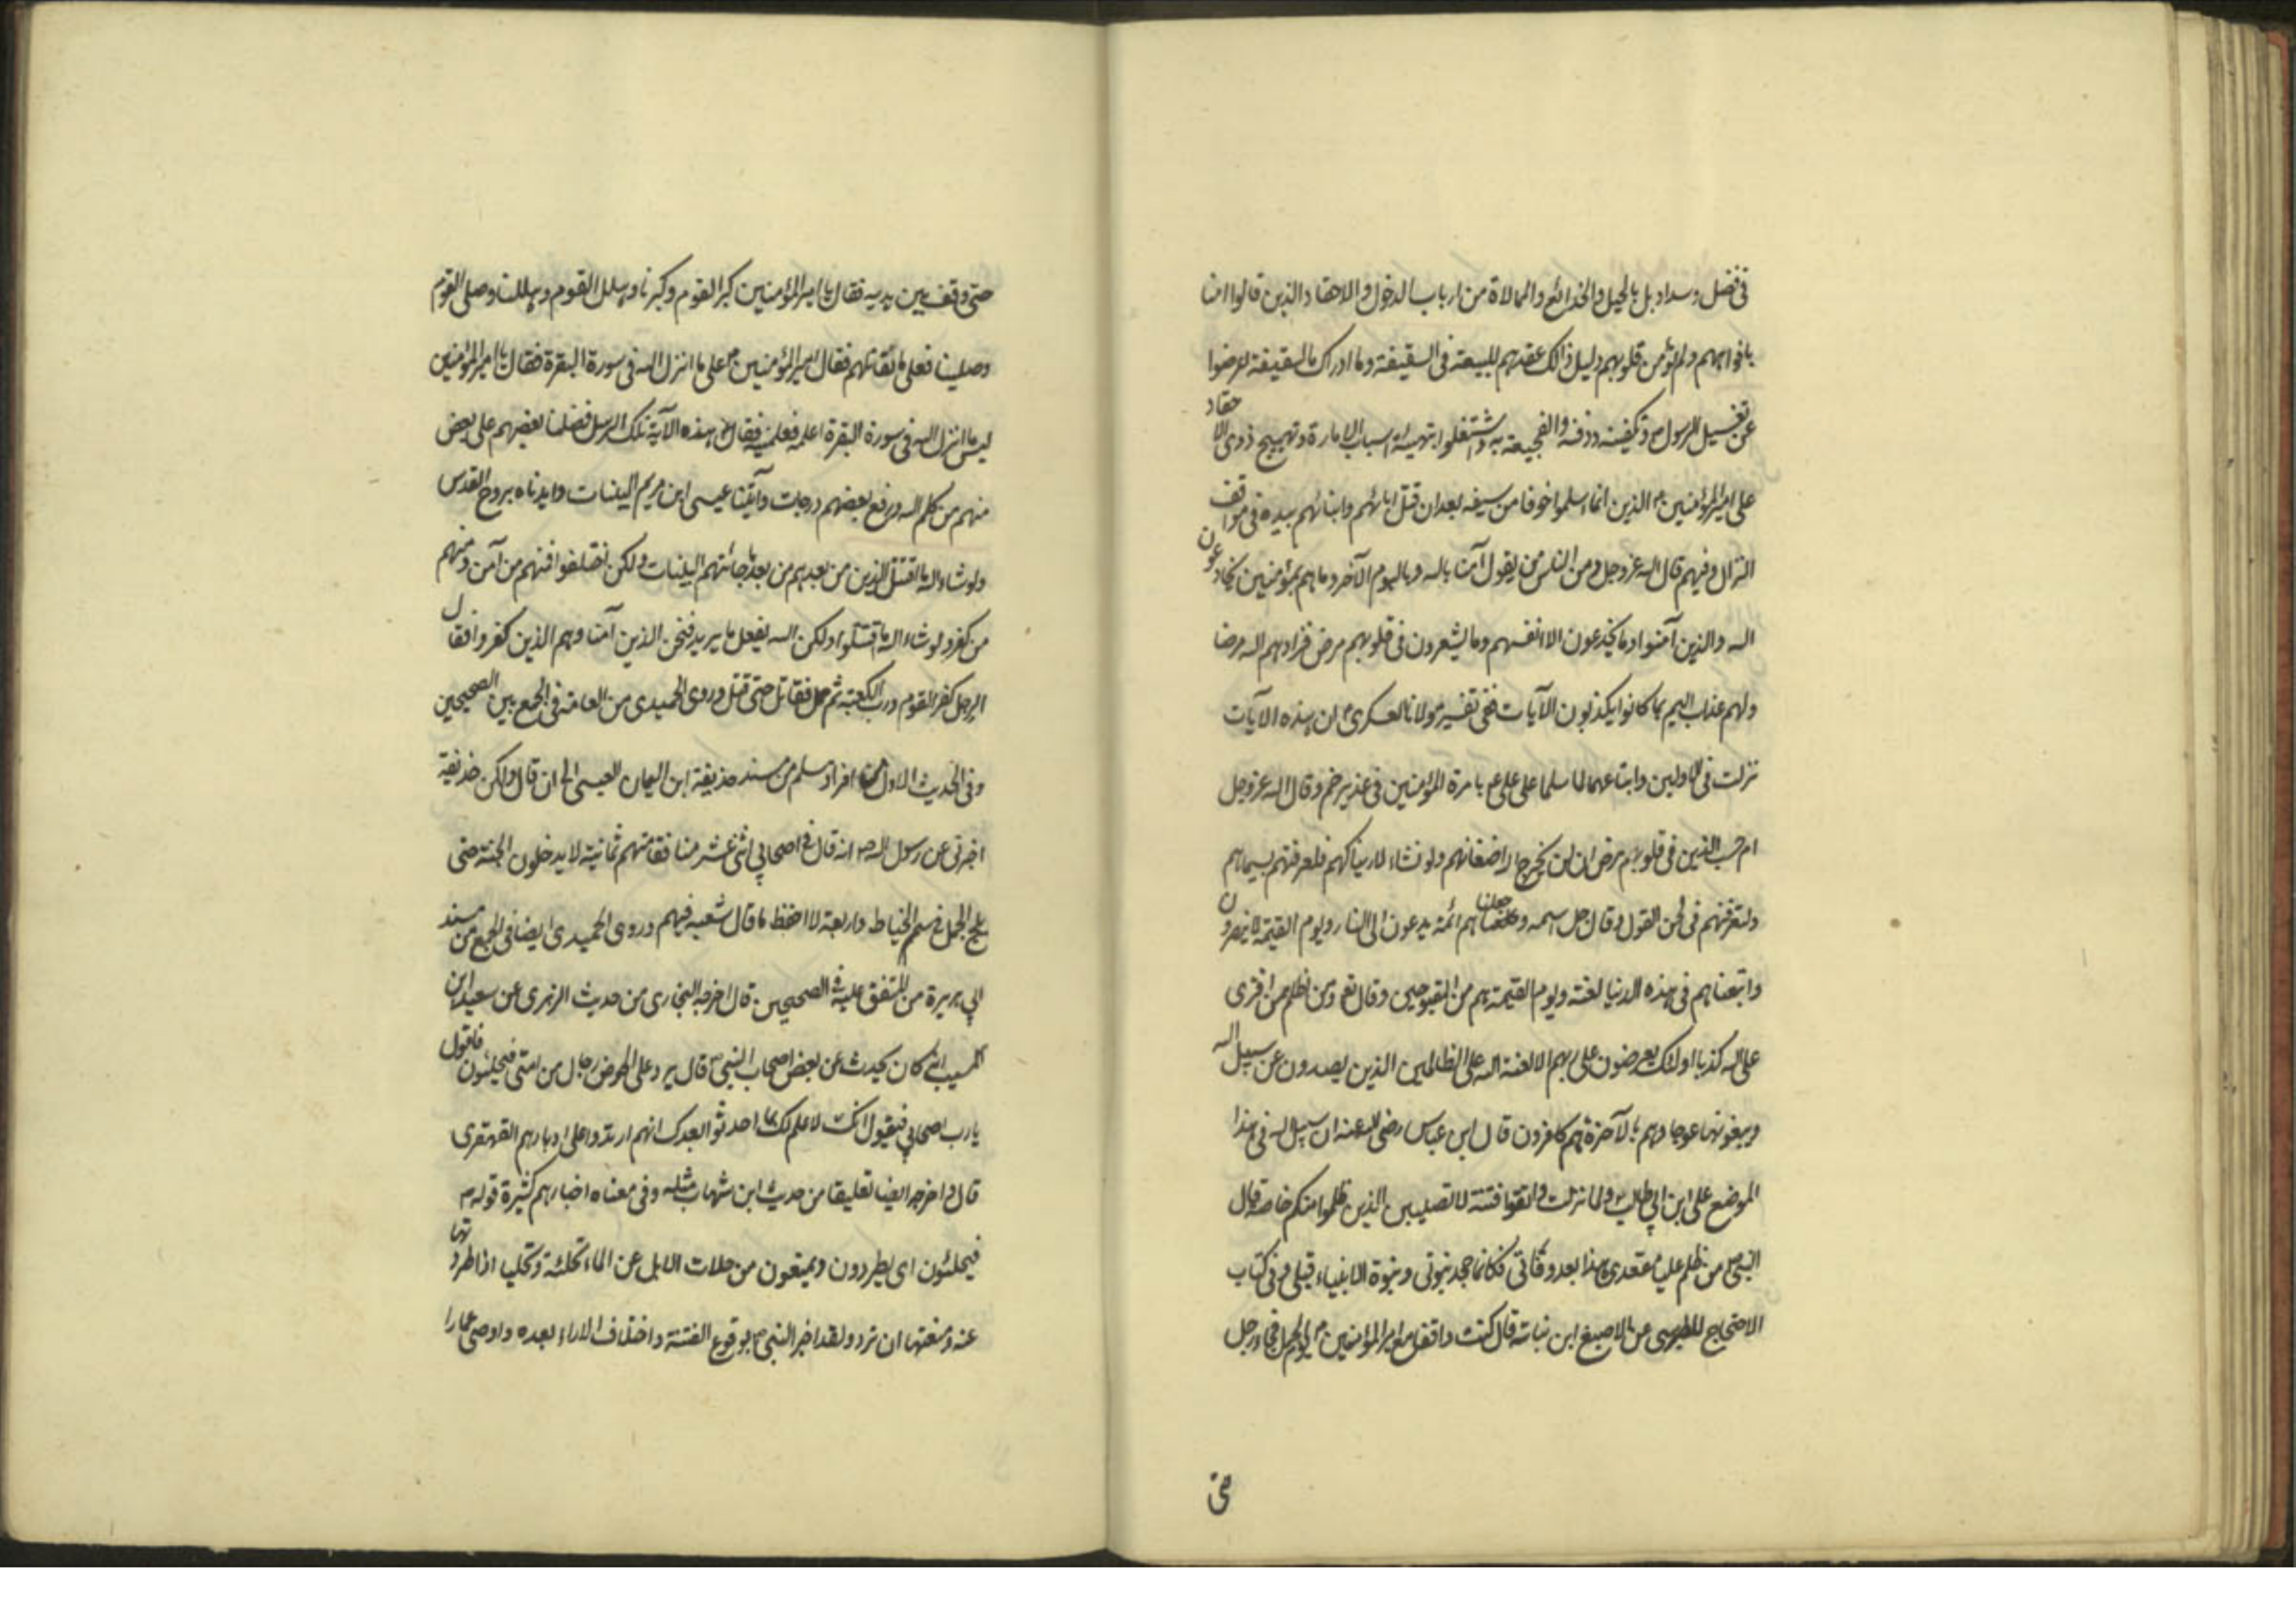 فی فضل وسداد بل بالحیل والخدائع والممالاة من ارباب الدخول والاحقاد الذین قالوا امنا
بافواههم ولم تؤمن قلوبهم دلیل ذالک عقدهم للبیعة فی السقیفة وما ادراک ما السقیفة تعرضوا
عن تغسیل الرسول ص وتکفینه ودفنه والفجیعة به واشتغلوا بتهیئة اسباب الامارة وتهییج ذوی الاحقاد
علی امیر المؤمنین ع الذین انما اسلموا خوفا من سیفه بعد ان قتل ابائهم وابنائهم بیده فی مواقف
النزال وفیهم قال الله عز وجل ومن الناس من یقول آمنا بالله وبالیوم الآخر وما هم بمؤمنین یخادعون
الله والذین آمنوا وما یخدعون الا انفسهم وما یشعرون فی قلوبهم مرض فزادهم الله مرضا
ولهم عذاب الیم بما کانوا یکذبون الآیات ففی تفسیر مولانا العسکری ع ان هذه الایات
نزلت فی الاولین واتباعهما لما سلما علی علی ع بامرة المؤمنین فی غدیر خم وقال الله عز وجل
ام حسب الذین فی قلوبهم مرض ان لن یخرج الله اضغانهم ولو نشاء لاریناکهم فلعرفتهم بسیماهم
ولتعرفنهم فی لحن القول وقال جل اسمه وجعلناهم ائمة یدعون الی النار ویوم القیمة لا ینصرون
واتبعناهم فی هذه الدنیا لعنة ویوم القیمة هم من المقبوحین وقال تع ومن اظلم ممن افتری
علی الله کذبا اولئک یعرضون علی ربهم الا لعنة الله علی الظالمین الذین یصدون عن سبیل الله
ویبغونها عوجا وهم بالآخرة هم کافرون قال ابن عباس رضی الله عنه ان سبیل الله فی هذا
الموضع علی ابن ابی طالب ع ولما نزلت واتقوا فتنة لا تصیبن الذین ظلموا منکم خاصة قال
النبی ص من ظلم علیا مقعدی هذا بعد وفاتی فکانما جحد نبوتی ونبوة الانبیاء قبلی وفی کتاب
الاحتجاج للطبرسی عن الاصبغ ابن نباته قال کنت واقفا مع امیر المؤمنین ع یوم الجمل فجاء رجل
حتی وقف بین یدیه فقال یا امیر المؤمنین کبر القوم وکبرنا وهلل القوم وهللنا وصلی القوم
وصلینا فعلی ما نقاتلهم فقال امیر المؤمنین ع علی ما انزل الله فی سورة البقرة فقال یا امیر المؤمنین
لیس ما انزل الله فی سورة البقرة اعلمه فعلمنیه فقال ع هذه الآیة تلک الرسل فضلنا بعضهم علی بعض
منهم من کلم الله ورفع بعضهم درجات وآتینا عیسی ابن مریم البینات وایدناه بروح القدس
ولو شاء الله ما اقتتل الذین من بعدهم من بعد ما جائتهم البینات ولکن اختلفوا فمنهم من آمن ومنهم
من کفر ولو شاء الله ما اقتتلوا ولکن الله یفعل ما یرید فنحن الذین آمنا وهم الذین کفروا فقال
الرجل کفر القوم ورب الکعبة ثم حمل فقاتل حتی قتل وروی الحمیدی من العامة فی الجمع بین الصحیحین
وفی الحدیث الاول من افراد مسلم من مسند حذیفة ابن الیمان العبسی الی ان قال ولکن حذیفة
اخبرنی عن رسول الله ص انه قال فی اصحابی اثنی عشر منافقا منهم ثمانیة لا یدخلون الجنة حتی
یلج الجمل فی سم الخیاط واربعة لا احفظ ما قال شعبه فیهم وروی الحمیدی ایضا فی الجمع من مسند
ابی هریرة من المتفق علیه فی الصحیحین قال اخرجه البخاری من حدیث الزهری عن سعید ابن
المسیب انه کان یحدث عن بعض اصحاب النبی ص قال یرد علی الحوض رجال من امتی فیحلئون فاقول
یا رب اصحابی فیقول انک لا علم لک بما احدثوا بعدک انهم ارتدوا علی ادبارهم القهقری
قال واخرجه ایضا تعلیقا من حدیث ابن شهاب مثله وفی معناه اخبارهم کثیرة قوله ص
فیحلئون ای یطردون ویمنعون من حلات الابل عن الماء تحلئة وتحلیا اذا طردتها
عنه ومنعتها ان ترد ولقد اخبر النبی ص بوقوع الفتنة واختلاف الاراء بعده واوصی عمارا